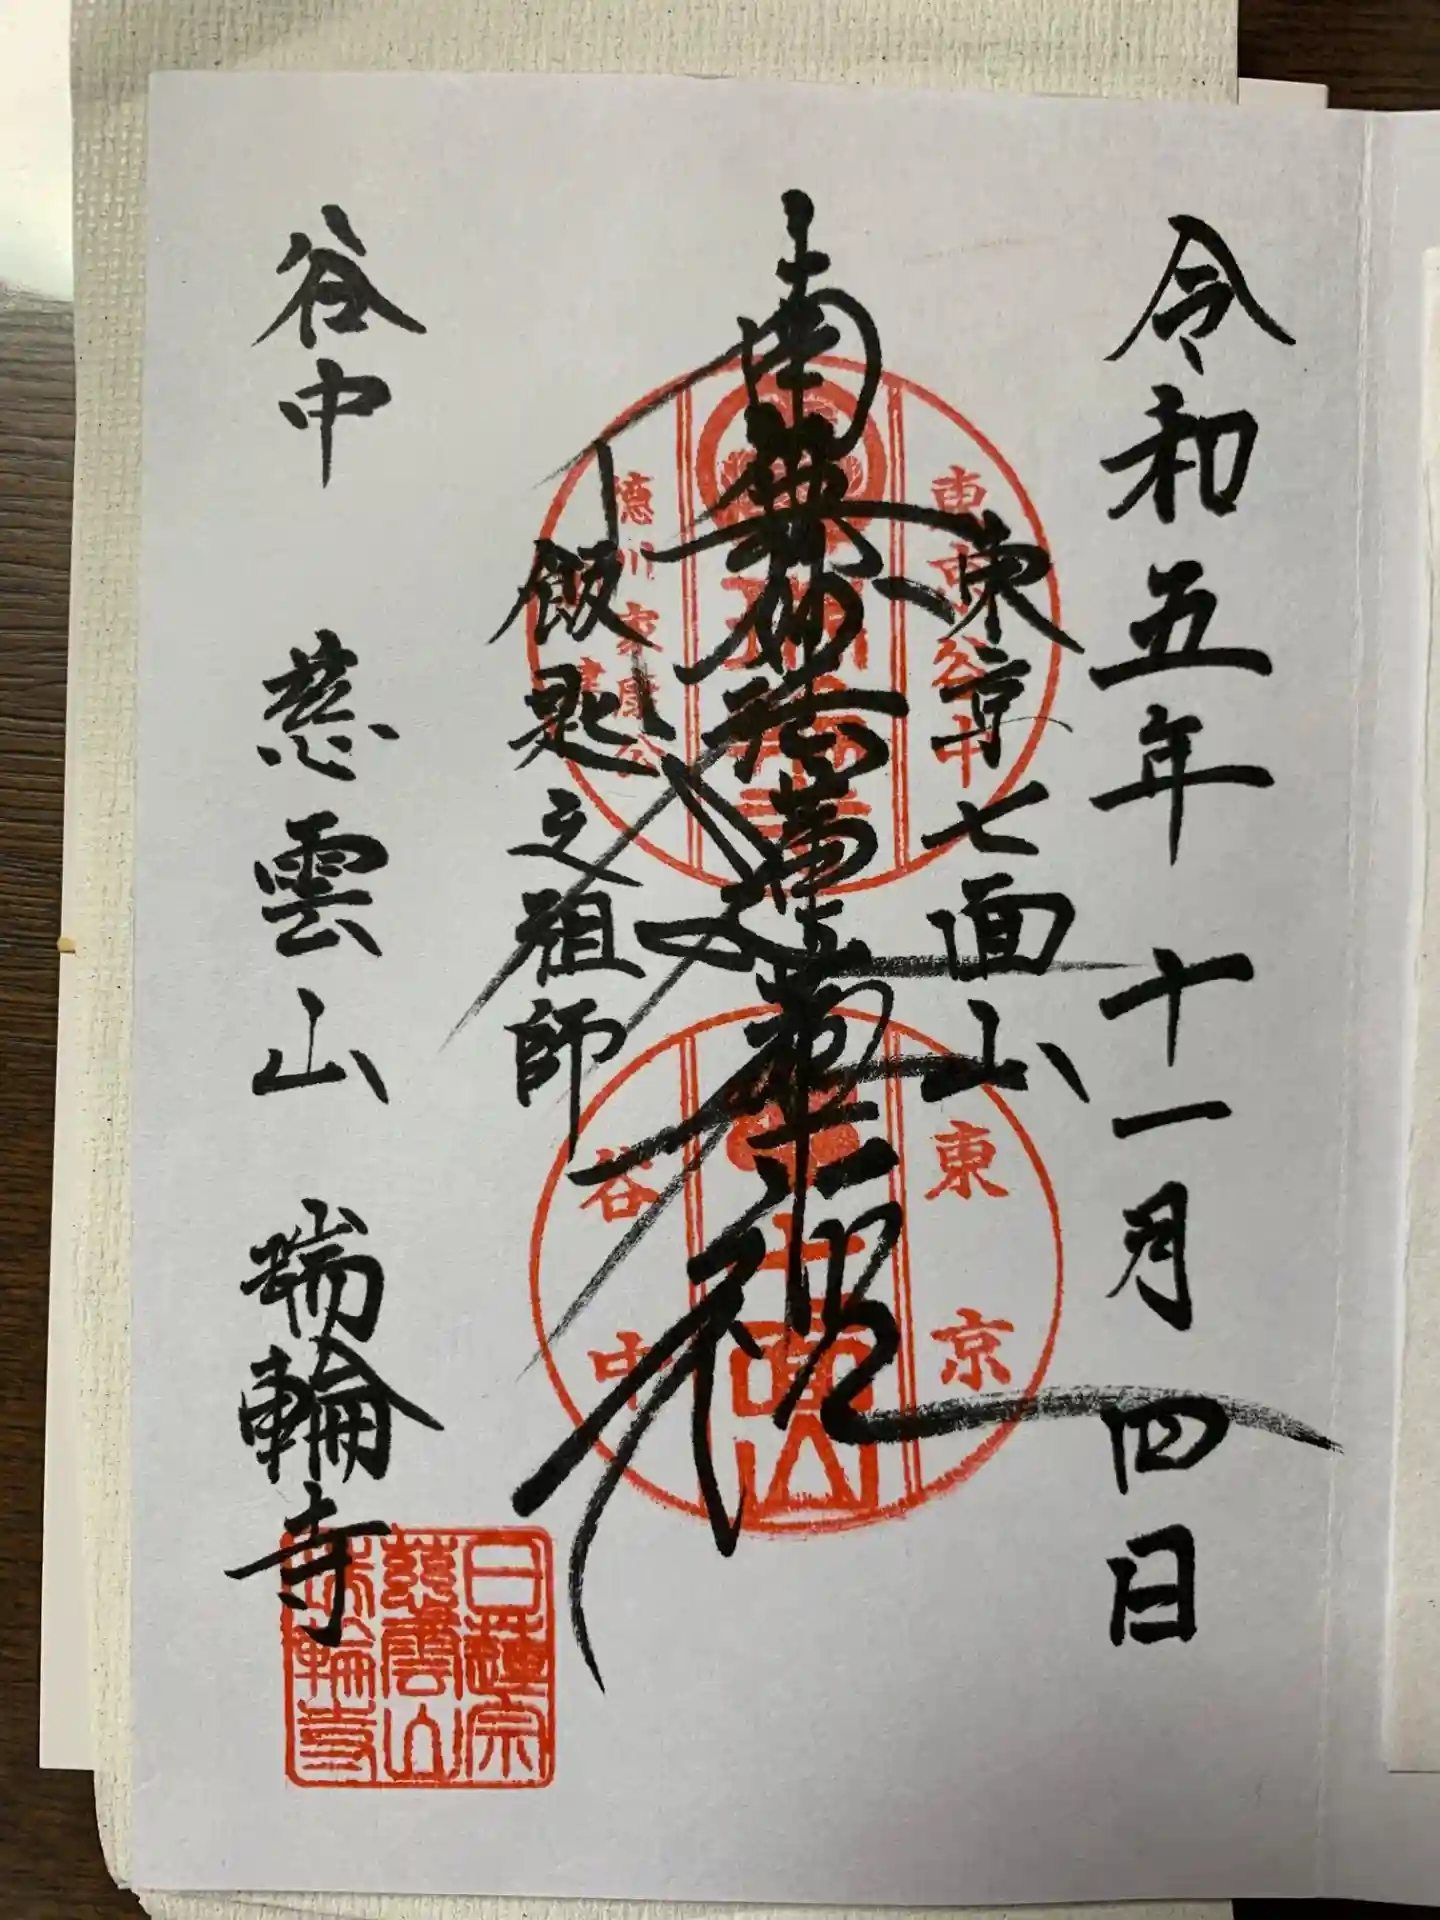 令和五年 十一月四日
東京 七面山
南無妙法蓮華経
飯匙之祖師
谷中 慈雲山 瑞輪寺
東京谷中
瑞輪寺
徳川家康公
建
東京
七面山
谷中
日蓮宗
慈雲山
瑞輪寺